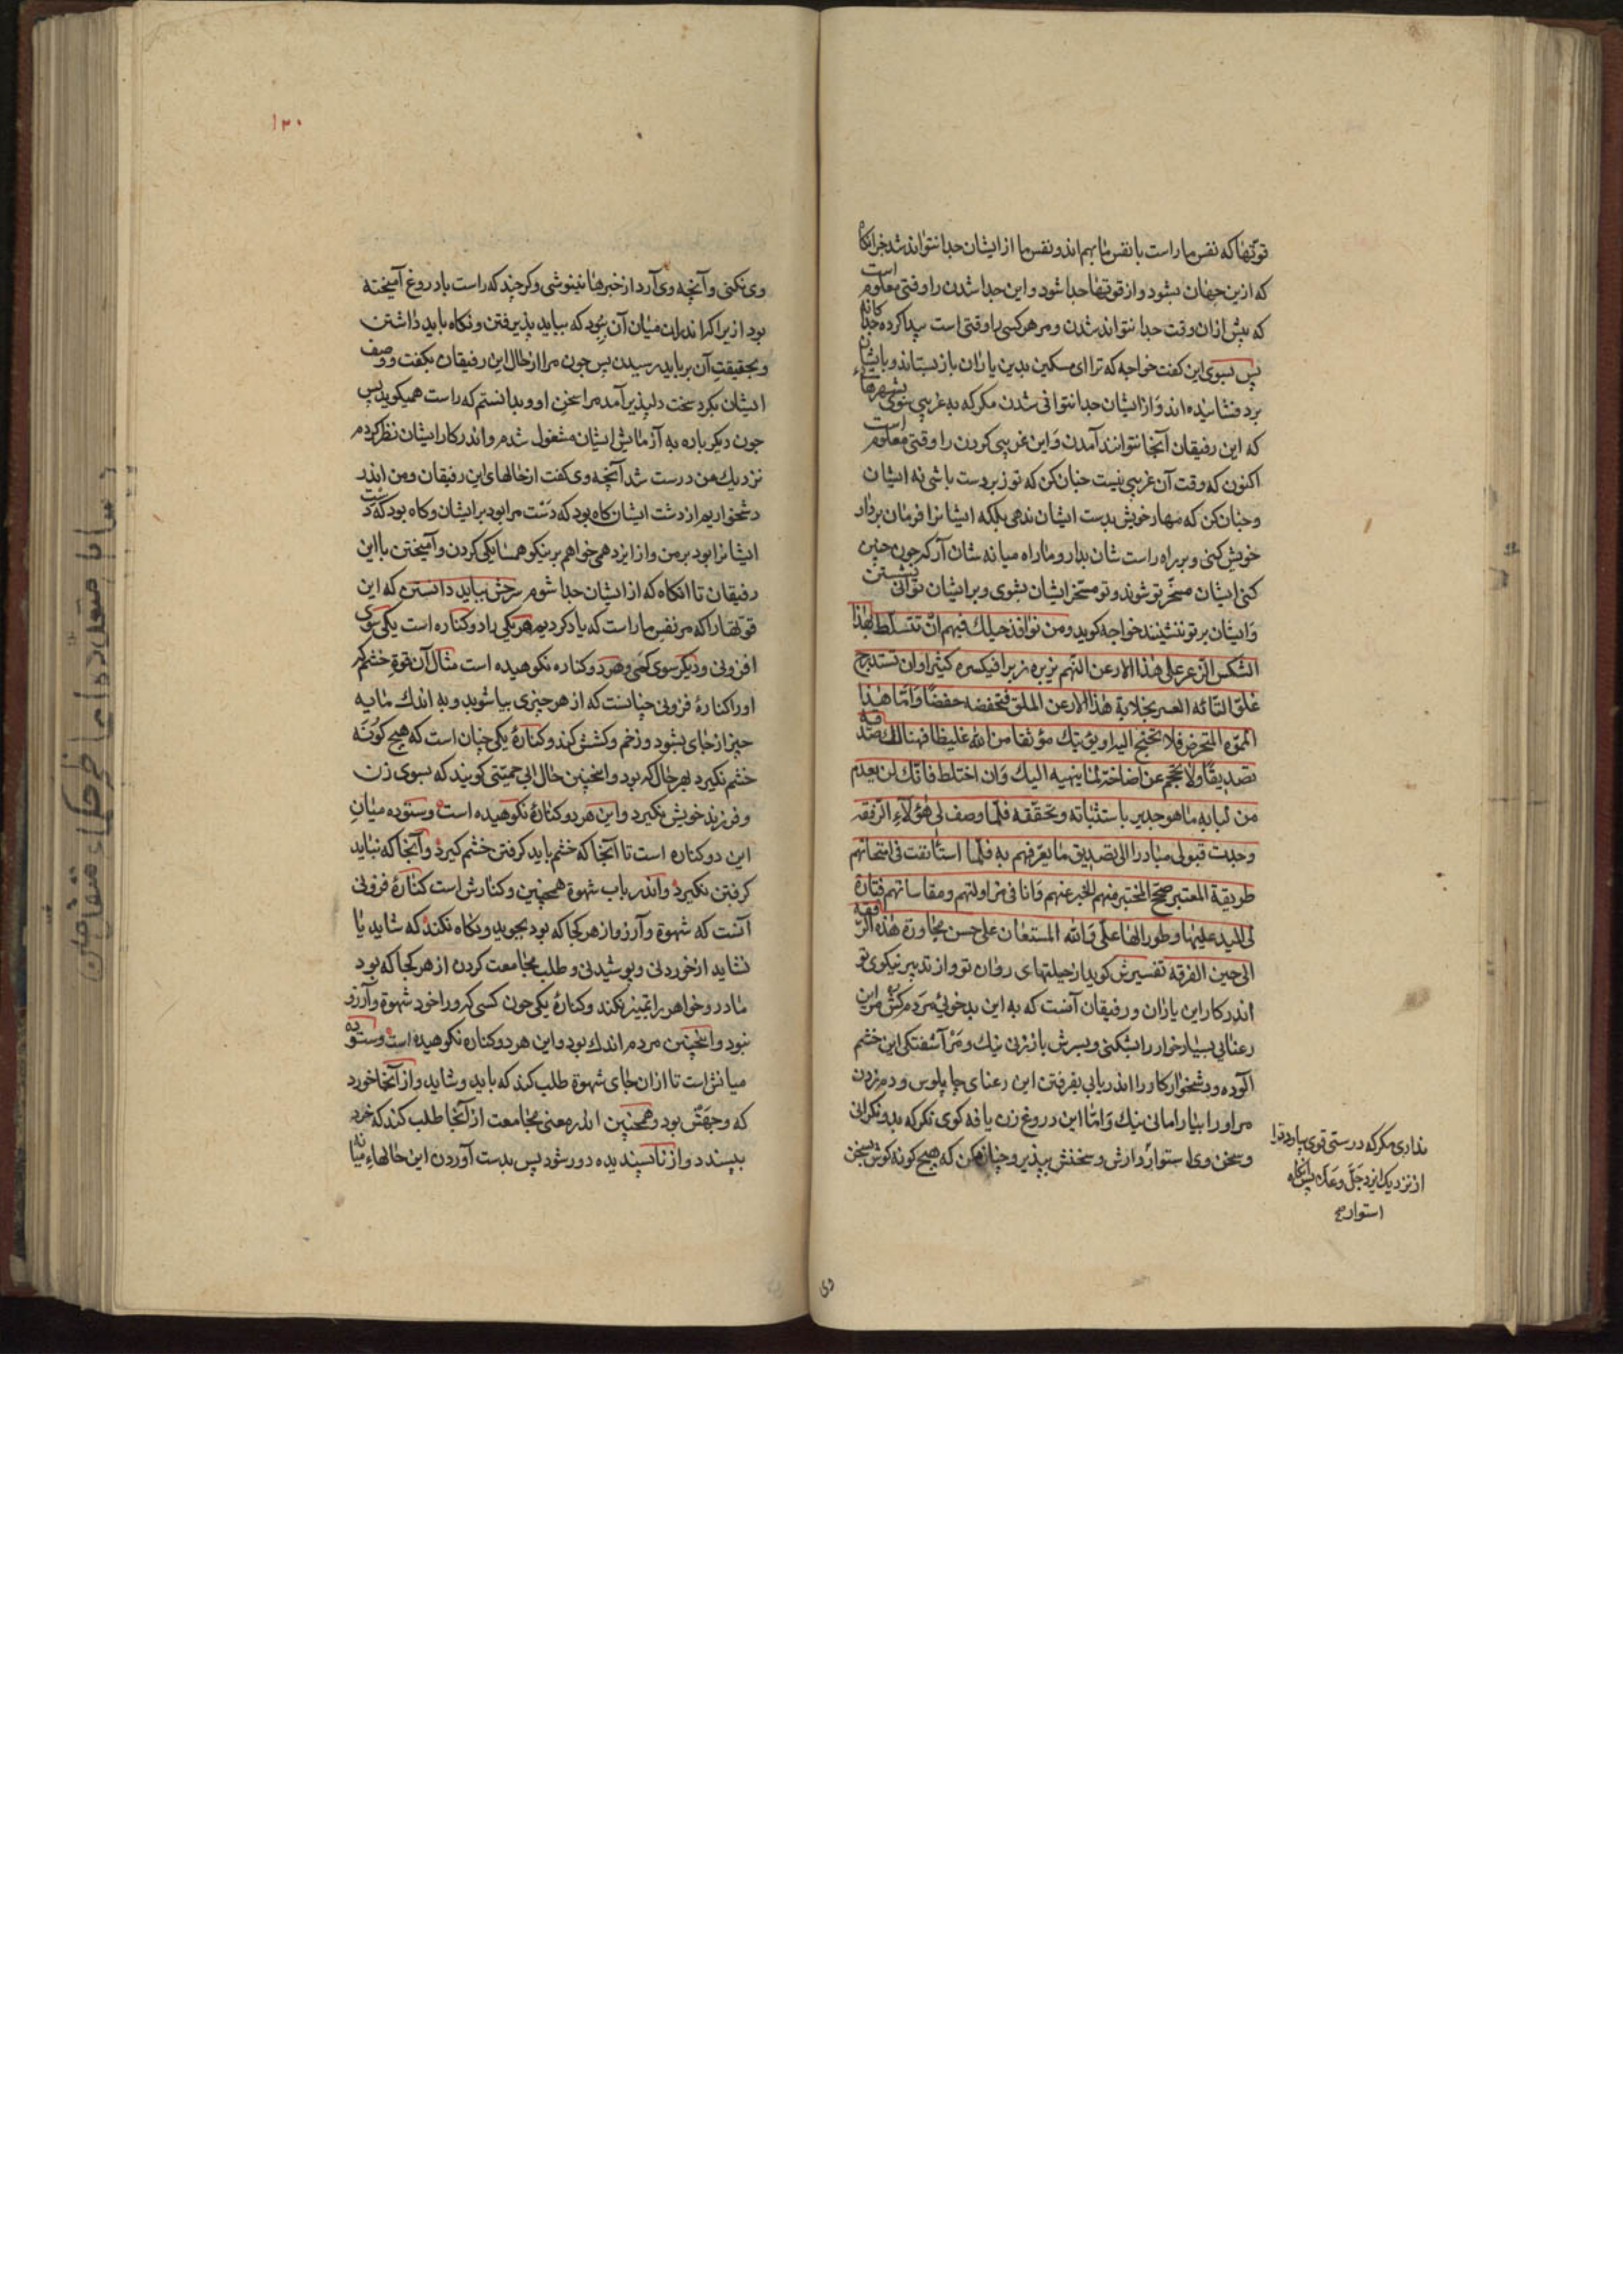 قوتهٰا که نفس ما راست با نفس ما بهم اند و نفس ما از ایشان جدا نتواند شد جز انگاه
که ازین جهان بشود و از قوتها جدا شود و این جدا شدن را وقتی معلوم است
که پیش ازان وقت جدا نتواند شدن و مر هر کسی را وقتی است پیدا کرده جداگانه
پس بسوی این گفت خواجه که ترا ای مسکین بدین یاران باز بستاند و بایشان
برد فشانیده اند و از ایشان جدا نتوانی شدن مکر که به غریبی شوی بشهرهاء
که این رفیقان آنجا نتوانند آمدن و این غریبی کردن را وقتی معلوم است
اکنون که وقت آن غریبی نیست چنان کن که تو زبردست باشی نه ایشان
و چنان کن که مهار خویش بدست ایشان ندهی بلکه ایشانرا فرمان بردار
خویش کنی و بر راه راست شان بدار و ما راه میانه شان آر که جون جنین
کنی ایشان مسخّر تو شوند و تو مسخّر ایشان نشوی و بر ایشان توانی نشستن
و ایشان بر تو ننشینند خواجه کوید و من نوافذ حیلك فیهم ان تتسلط بهٰذا
الشکس الزعر علی هٰذا الارعن النهم یزبره زبرا فیکسره کثیرا و ان تستدرج
غلق التائه العسر بخلابة هٰذا الارعن الملق فتخفضه خفضا و امّا هٰذا
المموّه المتخرص فلا تحتج الیه او یؤتیك موثقا من اللّٰه غلیظا فهنالك صدقه
تصدیقا و لا تحجم عن اصاخة لما ینهیه الیك و ان اختلط فانك لن تعدم
من انبائه ما هو جدیر باستثباته و تحققه فلما وصف لی هٰؤلاء الرفقه
وجدت قبولی مبادرا الی تصدیق ما یعرفهم به فلما استأنفت فی امتحانهم
طریقة المعتبر صحح المختبر منهم الخبر عنهم و انا فی مزاولتهم و مقاساتهم فتارة
لی الید علیها و طورا لها علی و اللّٰه المستعان علی حسن مجاورة هٰذه الرفقة
الی حین الفرقه تفسیرش کوید از حیلتهای روان تو و از تدبیر نیکوی تو
اندر کار این یاران و رفیقان آنست که به این بدخوئی مردم کش مر این
رعنای بسیار خوار را بشکنی و بسرش باز زنی نیك و مر آشفتکی این خشم
آلوده و دشخوار کار را اندر یابی بفرفتن این رعنای چاپلوس و دم زدن
مر او را بیارامانی نیك و امّا این دروغ زن یافه کوی نکر که بدو نکرانی
و سخن وی استوار دارش و سخنش بپذیر و چنان مکن که هیچ کونه کوش بسخن
نداری مکر که درستی قوی بیاورد ترا
از نزدیك ایزد جلّ و عَلا پس آنکاه
استوار صح
وی
۱۲۰
وی نکنی و آنچه وی آرد از خبرها ننیوشی و کرچند که راست با دروغ آمیخته
بود ازیرا که اندران میان آن بُوَد که بباید پذیرفتن و نکاه باید داشتن
و بحقیقت آن بر باید رسیدن پس جون مرا از حال این رفیقان بکفت و وصف
ایشان بکرد سخت دلپذیر آمد مرا سخن او و بدانستم که راست همیکوید پس
جون دیکر باره به آزمایش ایشان مشغول شدم و اندر کار ایشان نظر کردم
نزدیك من درست شد آنچه وی کفت از حالهای این رفیقان و من اندر
دشخواریم از دست ایشان کاه بود که دست مرا بود بر ایشان و کاه بود که دست
ایشانرا بود بر من و از ایزد همی خواهم بر نیکو همسایکی کردن و آمیختن با این
رفیقان تا انکاه که از ایشان جدا شوم شرحش بباید دانستن که این
قوتها را که مر نفس ما راست که یاد کردیم هر یکی را دو کناره است یکی سوی
افزونی و دیکر سوی کمی و هر دو کناره نکوهیده است مثال آن قوة خشم کر
او را کنارۀ فزونی چنانست که از هر چیزی بیاشوبد و به اندك مایه
چیز از جای بشود و زخم و کشش کند و کنارۀ یکی چنان است که هیچ کونه
خشم نکیرد بهر حال که بود و انچنین حال ابی حمیّتی کویند که بسوی زن
و فرزند خویش نکیرد و این هر دو کنارۀ نکوهیده است و ستوده میان
این دو کناره است تا آنجا که خشم باید کرفتن خشم کیرد و آنجا که نباید
کرفتن نکیرد و اندر باب شهوة همچنین و کنارش است کنارۀ فزونی
آنست که شهوة و آرزو از هر کجا که بود بجوید و نکاه نکند که شاید یا
نشاید از خوردنی و پوشیدنی و طلب مجامعت کردن از هر کجا که بود
مادر و خواهر را تمییز نکند و کنارۀ یکی جون کسی که ورا خود شهوة و آرزو
نبود و انچنین مردم اندك بود و این هر دو کناره نکوهیده است و ستوده
میانش است تا ازان جای شهوة طلب کند که باید و شاید و از آنجا خورد
که وجهش بود و همچنین اندر معنی مجامعت از آنجا طلب کند که خرد
بپسندد و از ناپسندیده دور شود پس بدست آوردن این حالهاء میانه